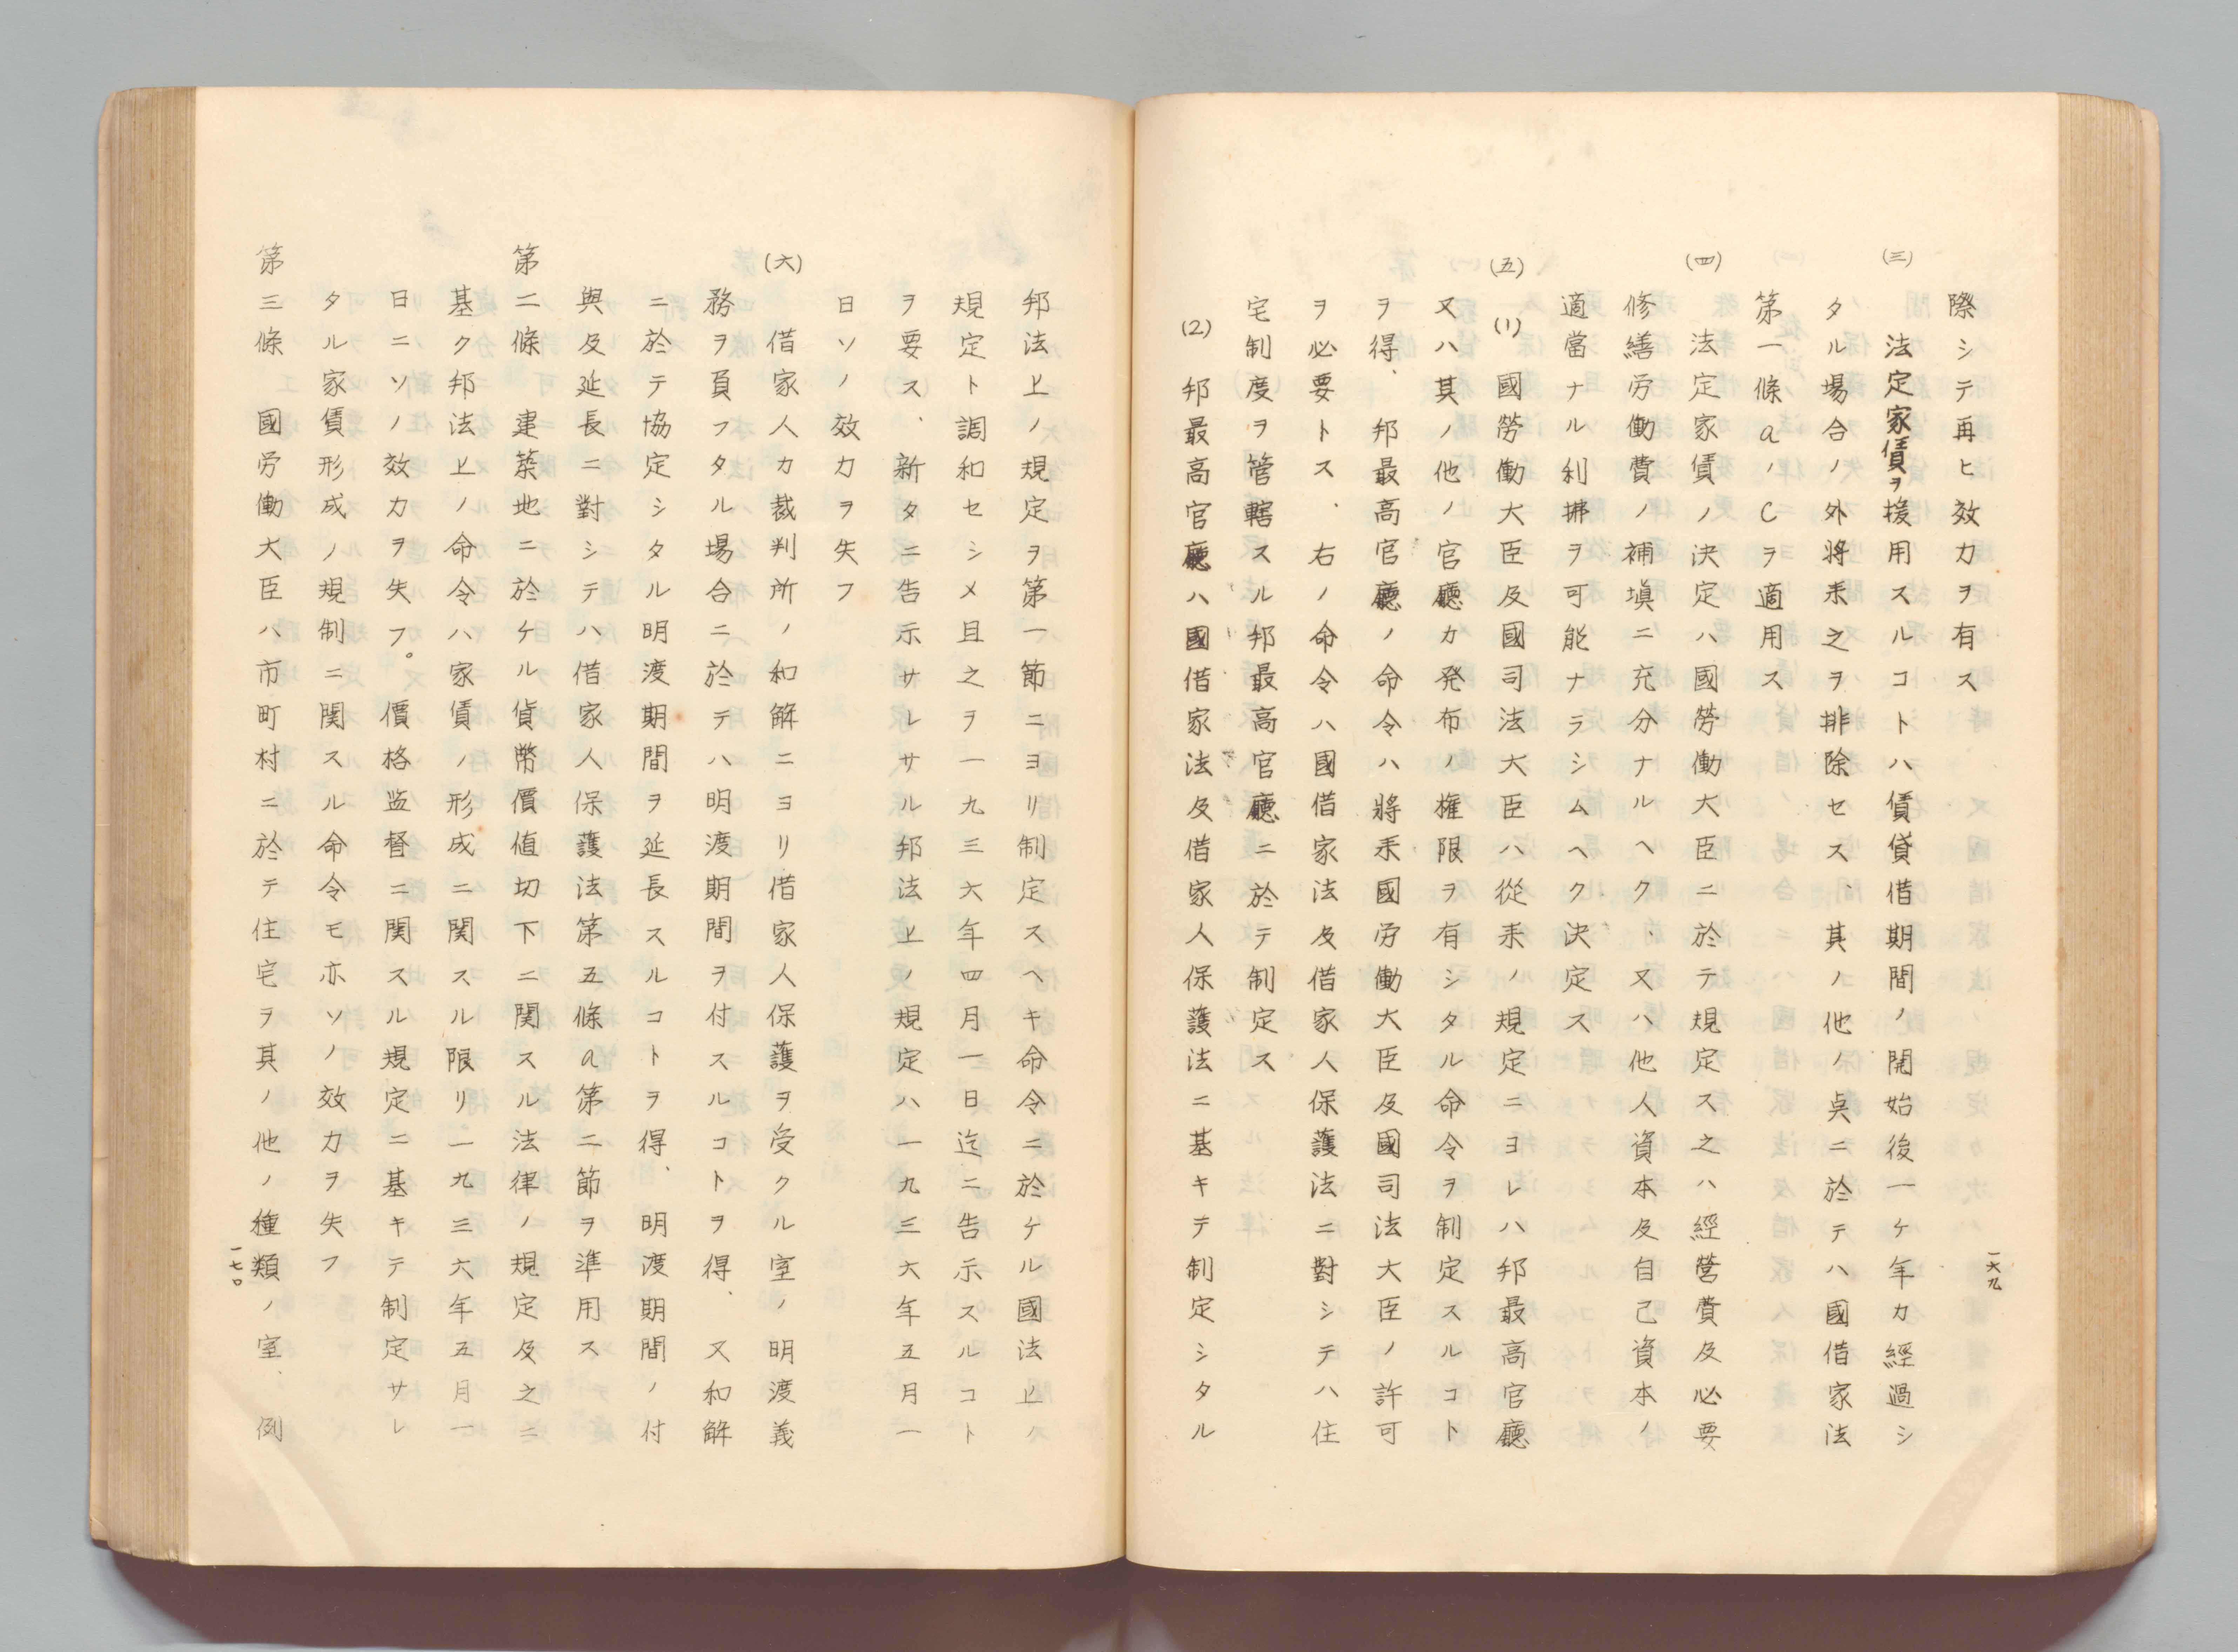 際シテ再ヒ效力ヲ有ス
(三) 法定家賃ヲ援用スルコトハ賃貸借期間ノ開始後一ケ年カ經過シ
タル場合ノ外將来之ヲ排除セス、其ノ他ノ点ニ於テハ國借家法
第一條a、Cヲ適用ス
(四) 法定家賃ノ決定ハ國勞働大臣ニ於テ規定ス之ハ經営費及必要
修繕労働費ノ補塡ニ充分ナルヘク、又ハ他人資本及自己資本ノ
適當ナル利拂ヲ可能ナラシムヘク決定ス
(五) (1) 國勞働大臣及國司法大臣ハ從来ノ規定ニヨレハ邦最高官廳
又ハ其ノ他ノ官廳カ発布ノ権限ヲ有シタル命令ヲ制定スルコト
ヲ得、邦最高官廳ノ命令ハ將来國労働大臣及國司法大臣ノ許可
ヲ必要トス、右ノ命令ハ國借家法及借家人保護法ニ對シテハ住
宅制度ヲ管轄スル邦最高官廳ニ於テ制定ス
(2) 邦最高官廳ハ國借家法及借家人保護法ニ基キテ制定シタル
一六九
邦法上ノ規定ヲ第一節ニヨリ制定スヘキ命令ニ於ケル國法上ノ
規定ト調和セシメ且之ヲ一九三六年四月一日迄ニ告示スルコト
ヲ要ス、新タニ告示サレサル邦法上ノ規定ハ一九三六年五月一
日ソノ效力ヲ失フ
(六) 借家人カ裁判所ノ和解ニヨリ借家人保護ヲ受クル室ノ明渡義
務ヲ負フタル場合ニ於テハ明渡期間ヲ付スルコトヲ得、又和解
ニ於テ協定シタル明渡期間ヲ延長スルコトヲ得、明渡期間ノ付
與及延長ニ對シテハ借家人保護法第五條a第二節ヲ準用ス
第二條 建築地ニ於ケル貨幣價值切下ニ関スル法律ノ規定及之ニ
基ク邦法上ノ命令ハ家賃ノ形成ニ関スル限リ一九三六年五月一
日ニソノ效力ヲ失フ。價格監督ニ関スル規定ニ基キテ制定サレ
タル家賃形成ノ規制ニ関スル命令モ亦ソノ效力ヲ失フ
第三條 國労働大臣ハ市町村ニ於テ住宅ヲ其ノ他ノ種類ノ室、例
一七〇